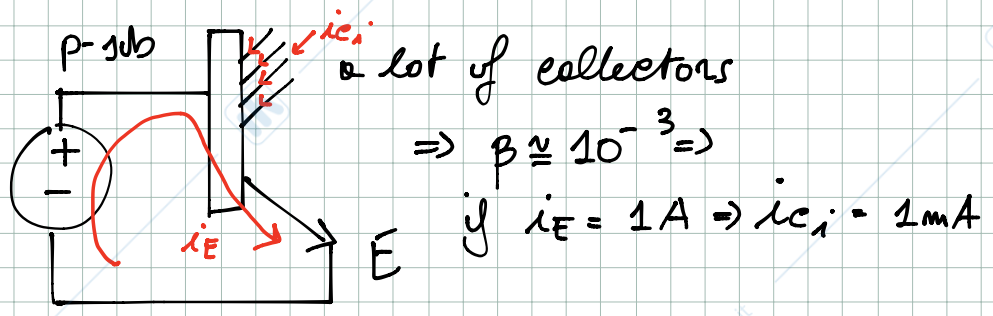 p-sub
i_ci
a lot of collectors
+
-
=> β ≅ 10^-3 =>
if i_E = 1A => i_ci = 1mA
i_E
E